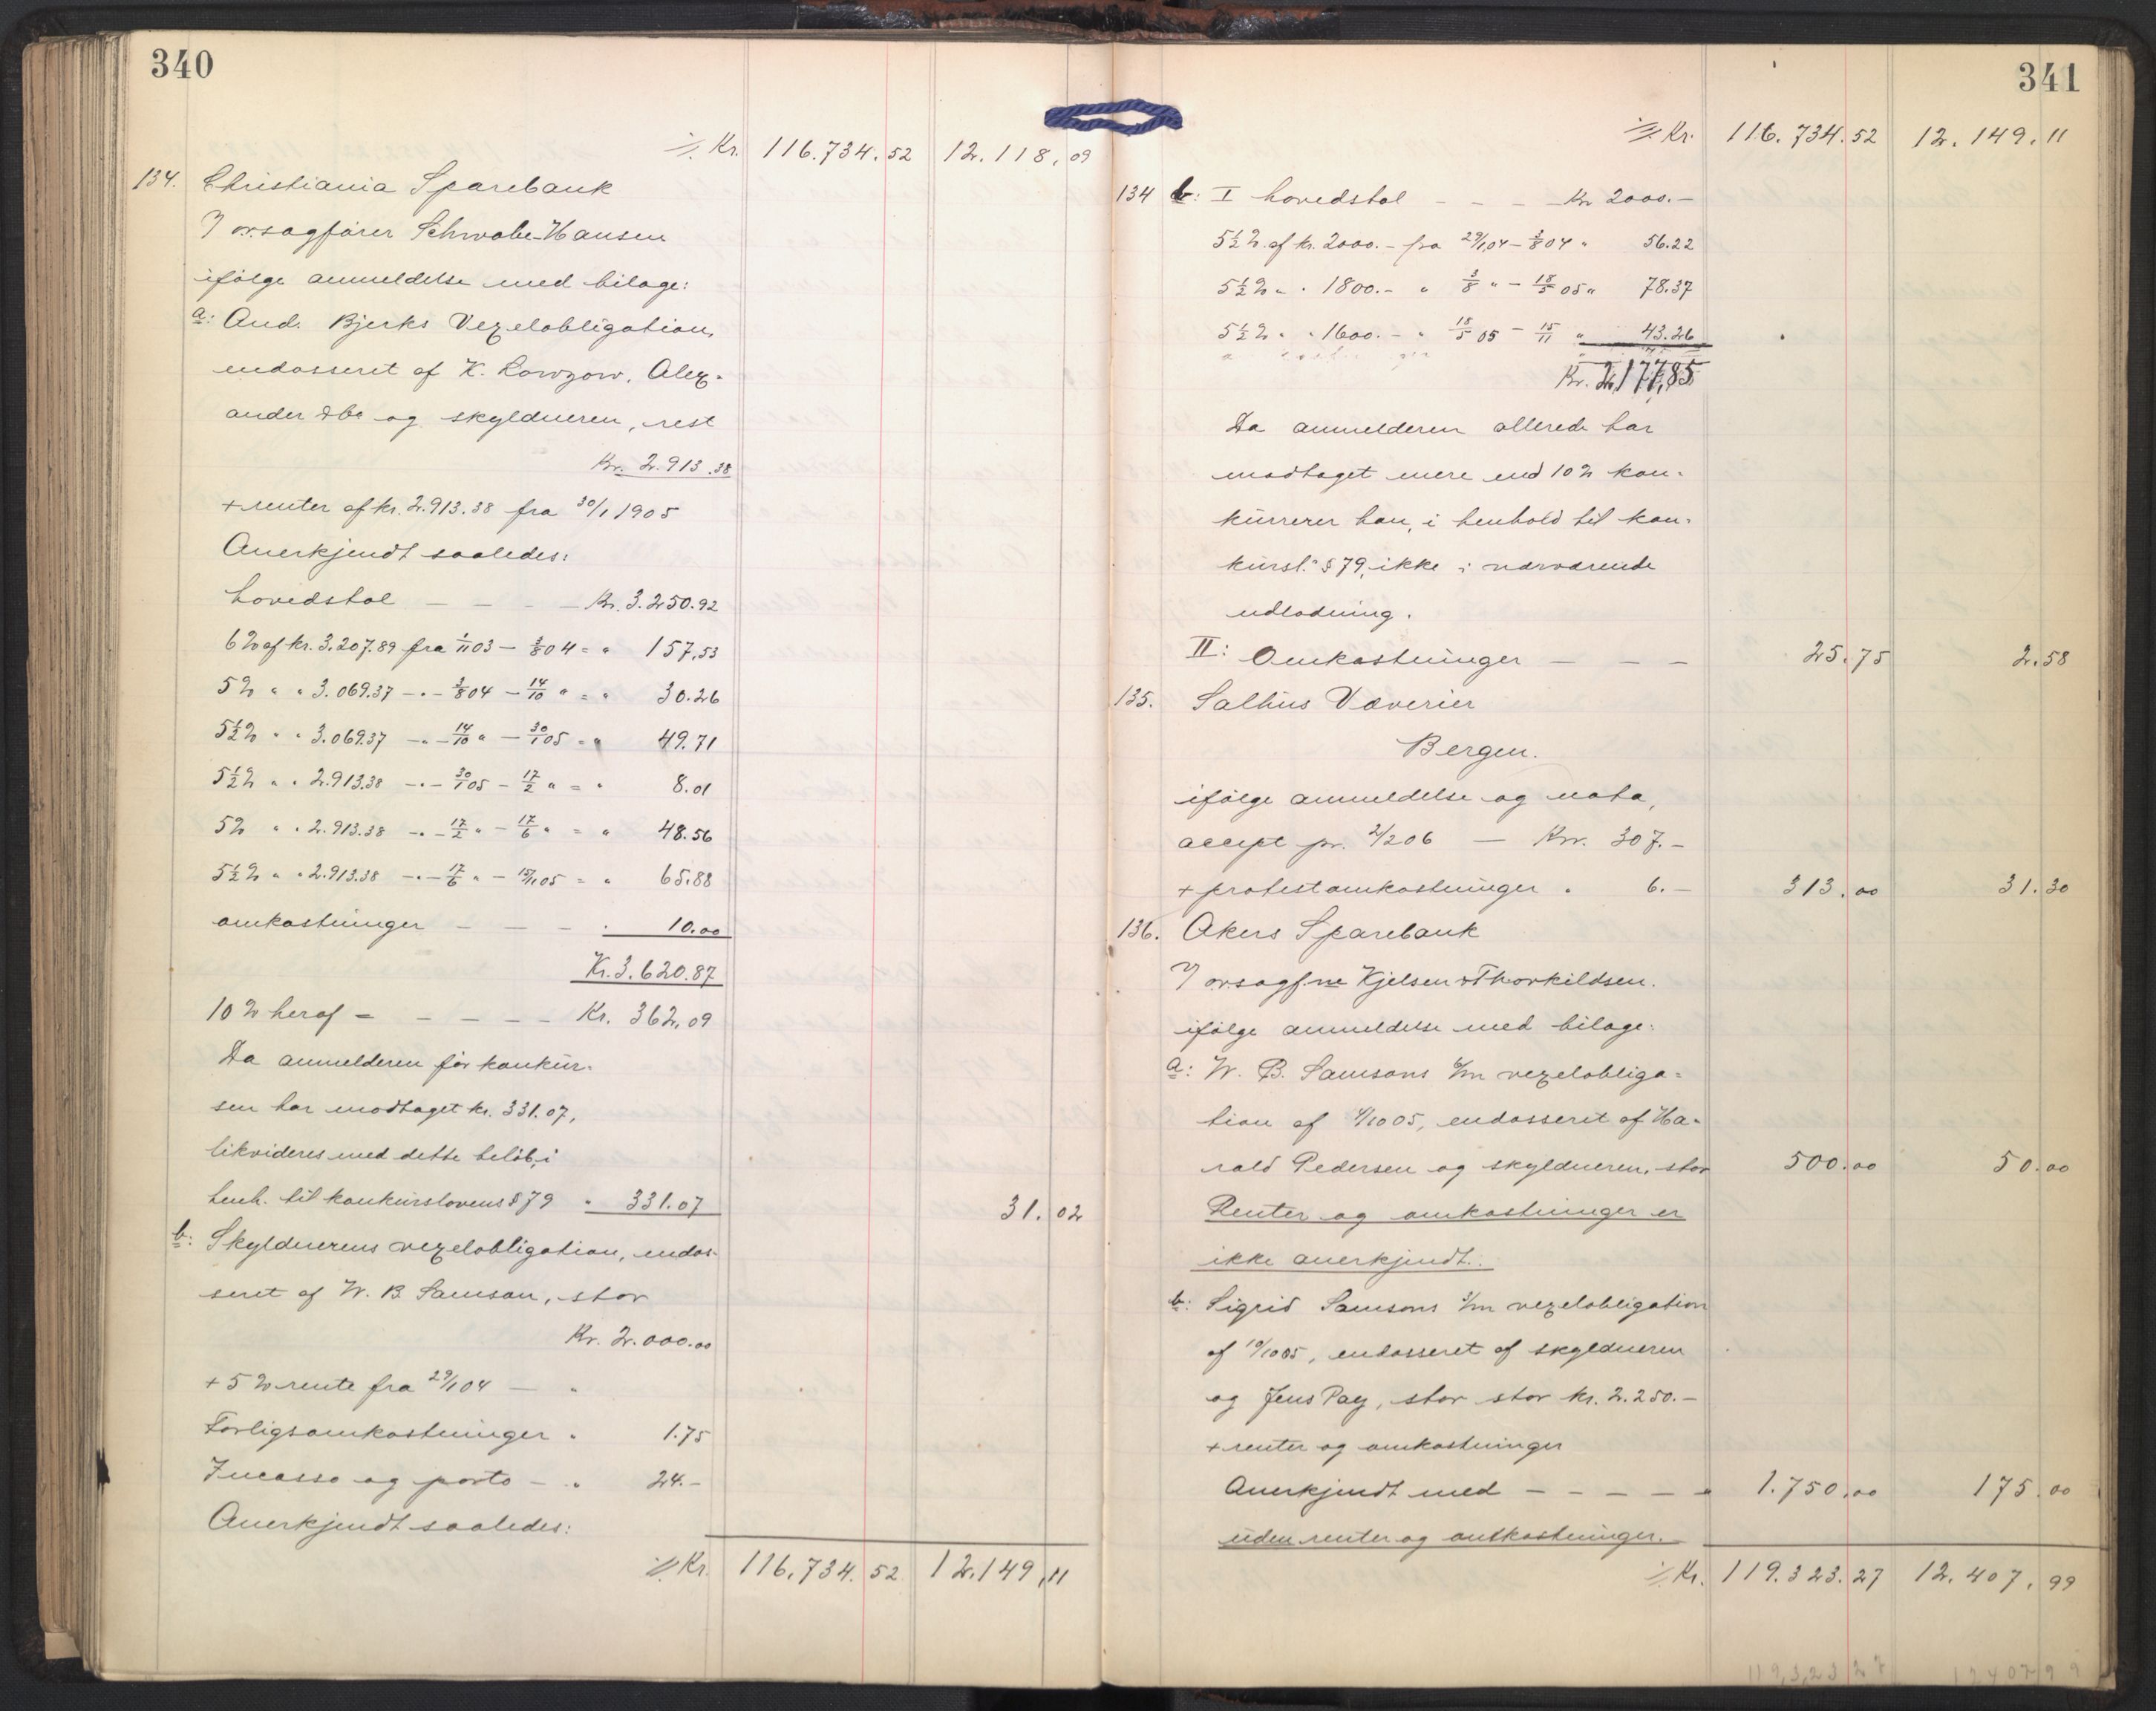 340
∹ Kr. 116.734.52 12.118,09
134. Christiania Sparebank
v/ o.r.sagfører Schwabe-Hansen
ifølge anmeldelse med bilage:
a: And. Bjerks Vexelobligation,
endosseret af K. Rowzow, Alex-
ander &be og skyldneren, rest
Kr. 2.913.38
+ renter af kr. 2.913.38 fra 30/1 1905
Anerkjendt saaledes:
hovedstol — — — Kr. 3.250.92
6% af kr. 3.207.89 fra 1/11 03 – 3/8 04 = " 157,53
5% " " 3.069.37 -"- 3/8 04 – 14/10 " = " 30.26
5½% " " 3.069.37 -"- 14/10 " – 30/1 05 = " 49.71
5½% " " 2.913.38 -"- 30/1 05 – 17/2 " = " 8.01
5% " " 2.913.38 -"- 17/2 " – 17/6 " = " 48.56
5½% " " 2.913.38 -"- 17/6 " – 15/11 05 = " 65.88
omkostninger — — — " 10.00
Kr. 3.620.87
10% heraf = — — — — Kr. 362,09
Da anmelderen før konkur-
sen har modtaget kr. 331.07,
likvideres med dette beløb, i
henh. til konkurslovens § 79 " 331.07 31.02
b: Skyldnerens vexelobligation, endos-
seret af W. B. Samson, stor
Kr. 2.000.00
+ 5% rente fra 29/1 04 — "
Forligsomkostninger " 1.75
Incasso og porto — " 24.–
Anerkjendt saaledes:
∹ Kr. 116.734.52 12.149,11
341
∹ Kr. 116.734.52 12.149.11
134 b: I hovedstol — — — Kr 2000.–
5½% af kr. 2000.– fra 29/1 04 – 3/8 04 " 56.22
5½% " " 1800.– " 3/8 " – 18/5 05 " 78.37
5½% " " 1600.– " 18/5 05 – 15/11 " 43.26
Kr. 2,177,85
Da anmelderen allerede har
modtaget mere end 10% kon-
kurrerer han, i henhold til kon-
kursl. § 79, ikke i nærværende
udlodning.
II: Omkostninger — — — 25.75 2.58
135. Salhus Væverier
Bergen.
ifølge anmeldelse og nota,
accept pr. 2/2 06 — Kr. 307.–
+ protestomkostninger " 6.– 313.00 31.30
136. Akers Sparebank
v/ o.r.sagf.ne Kjelsen & Thorkildsen.
ifølge anmeldelse med bilage:
a: W. B. Samsons 6/m vexelobliga-
tion af 4/10 05, endosseret af Ha-
rald Pedersen og skyldneren, stor 500.00 50.00
Renter og omkostninger er
ikke anerkjendt.
b: Sigrid Samsons 3/m vexelobligation
af 19/10 05, endosseret af skyldneren
og Jens Pay, stor stor kr. 2.250.–
+ renter og omkostninger
Anerkjendt med — — — — — 1.750.00 175.00
uden renter og omkostninger.
∹ Kr. 119.323.27 12.407,99
119,323 27 12407 99